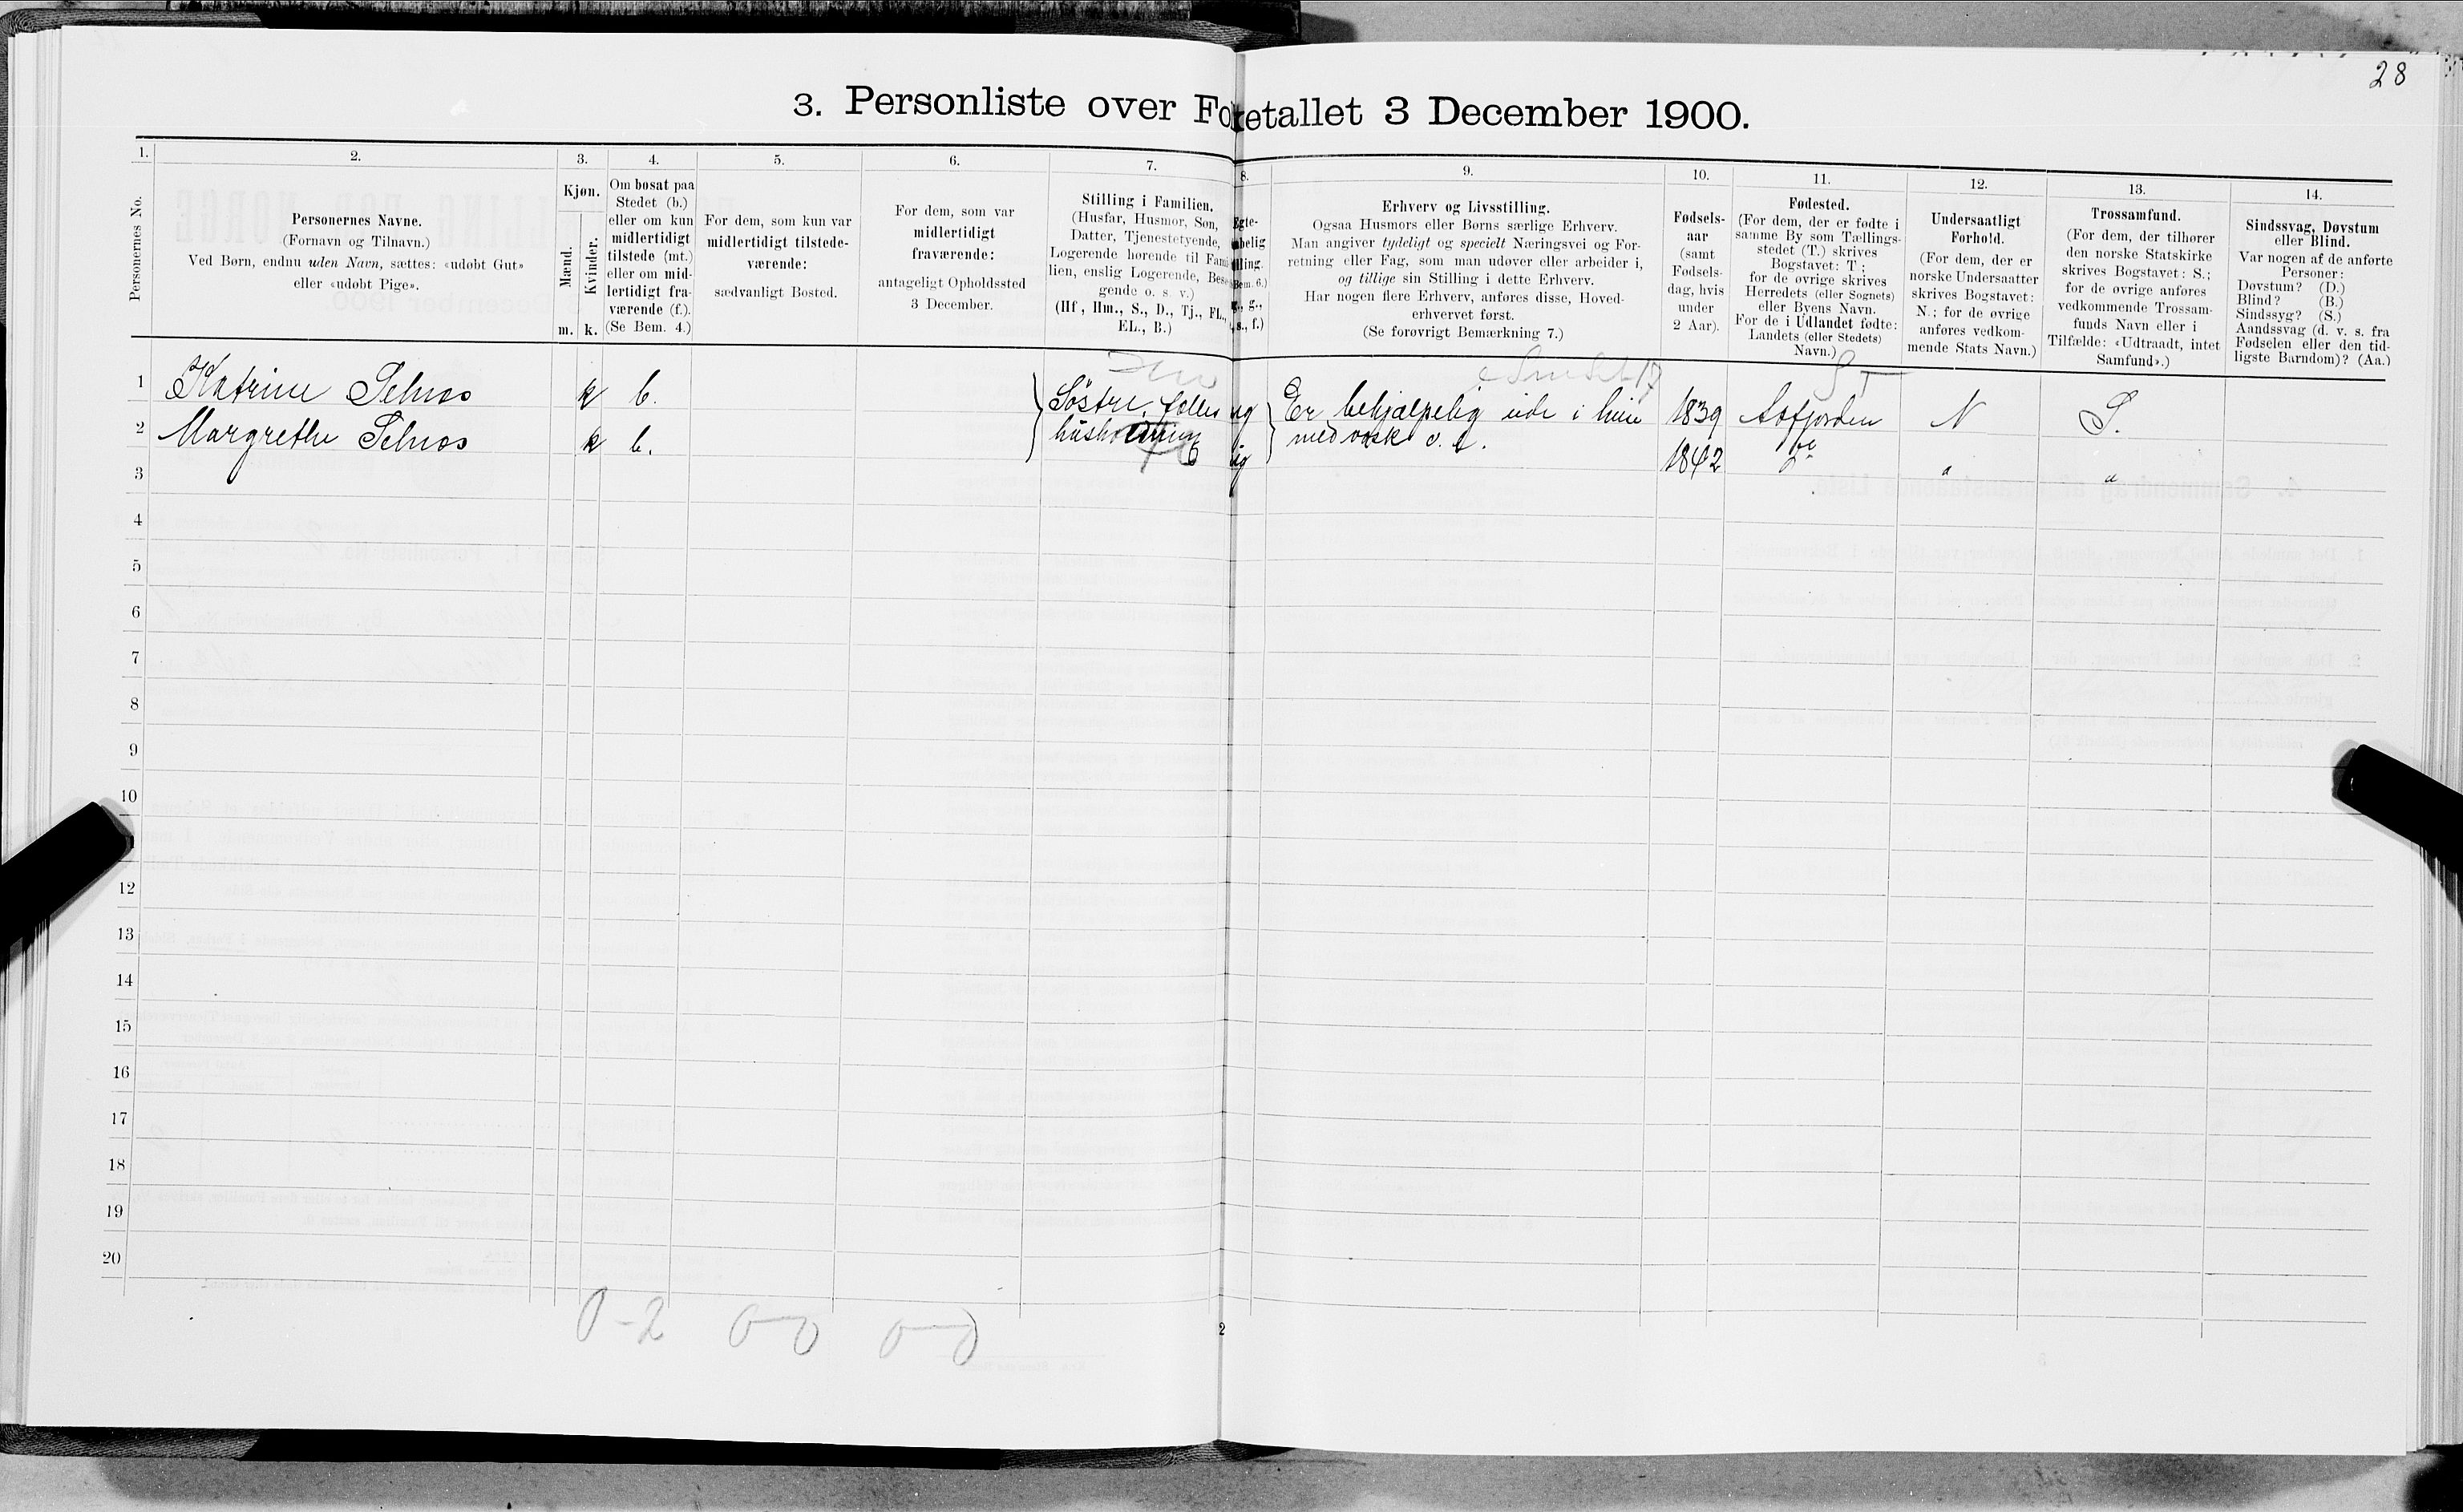 28
3. Personliste over Folketallet 3 December 1900.
1.
Personernes No.
2.
Personernes Navne.
(Fornavn og Tilnavn.)
Ved Børn, endnu uden Navn, sættes: «udøbt Gut»
eller «udøbt Pige».
3.
Kjøn.
Mænd.
Kvinder.
m. k.
4.
Om bosat paa
Stedet (b.)
eller om kun
midlertidigt
tilstede (mt.)
eller om mid-
lertidigt fra-
værende (f.).
(Se Bem. 4.)
5.
For dem, som kun var
midlertidigt tilstede-
værende:
sædvanligt Bosted.
6.
For dem, som var
midlertidigt
fraværende:
antageligt Opholdssted
3 December.
7.
Stilling i Familien.
(Husfar, Husmor, Søn,
Datter, Tjenestetyende,
Logerende hørende til Fami-
lien, enslig Logerende, Besø-
gende o. s. v.)
(Hf, Hm., S., D., Tj., FL.,
EL., B.)
8.
9.
Erhverv og Livsstilling.
Ogsaa Husmors eller Børns særlige Erhverv.
Man angiver tydeligt og specielt Næringsvei og For-
retning eller Fag, som man udøver eller arbeider i,
og tillige sin Stilling i dette Erhverv.
Har nogen flere Erhverv, anføres disse, Hoved-
erhvervet først.
(Se forøvrigt Bemærkning 7.)
10.
Fødsels-
aar
(samt
Fødsels-
dag, hvis
under
2 Aar).
11.
Fødested.
(For dem, der er fødte i
samme By som Tællings-
stedet (T.) skrives
Bogstavet: T;
for de øvrige skrives
Herredets (eller Sognets)
eller Byens Navn.
For de i Udlandet fødte:
Landets (eller Stedets)
Navn.)
12.
Undersaatligt
Forhold.
(For dem, der er
norske Undersaatter
skrives Bogstavet:
N.; for de øvrige
anføres vedkom-
mende Stats Navn.)
13.
Trossamfund.
(For dem, der tilhører
den norske Statskirke
skrives Bogstavet: S.;
for de øvrige anføres
vedkommende Trossam-
funds Navn eller i
Tilfælde: «Udtraadt, intet
Samfund».)
14.
Sindssvag, Døvstum
eller Blind.
Var nogen af de anførte
Personer:
Døvstum? (D.)
Blind? (B.)
Sindssyg? (S.)
Aandssvag (d. v. s. fra
Fødselen eller den tid-
ligste Barndom)? (Aa.)
ST
1 Katrine Selnes k b. Söstre, fælles ug Er behjælpelig ude i huse 1839 Aafjorden N S.
2 Margrethe Selnes k b. husholdning ug med vask o. l. 1842 do " "
3
4
5
6
7
8
9
10
12
13
14
15
16
17
18
19
20
0-2 0-0 0-0
2